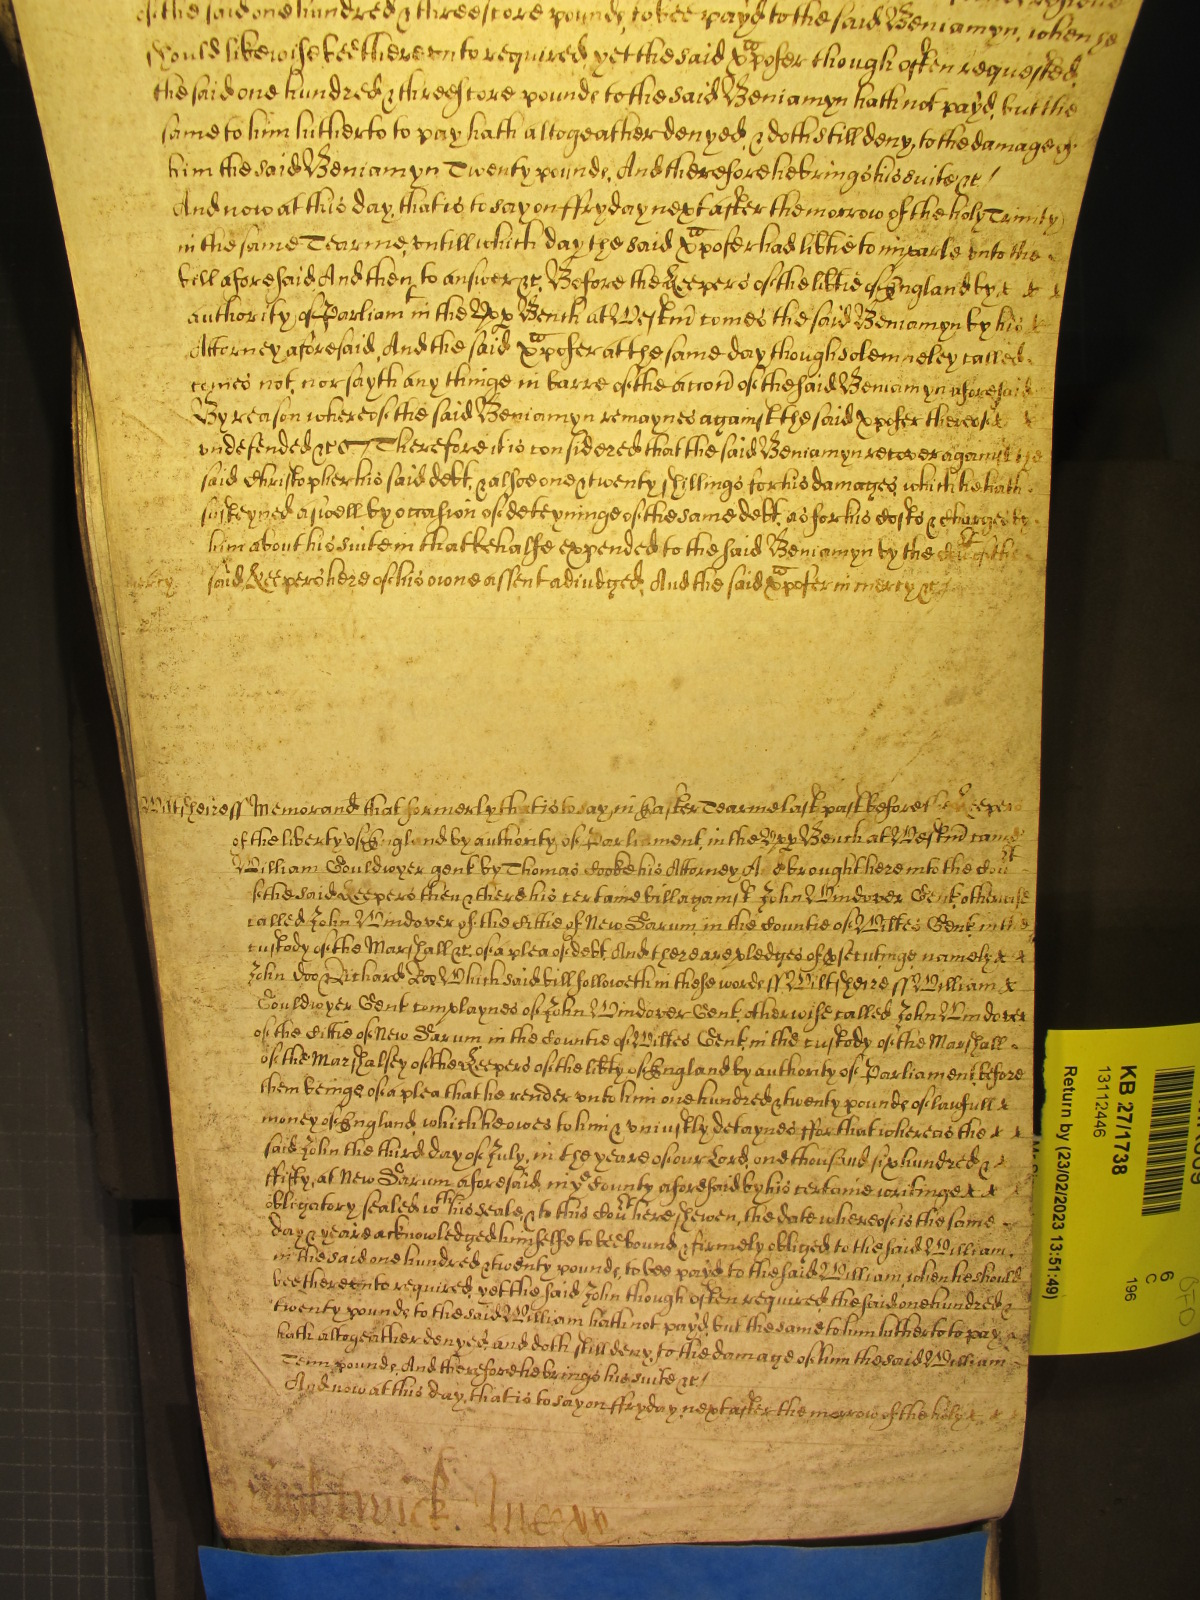 of the said one hundred & threescore pounds, to bee payd to the said Beniamyn, when he
should likewise bee thereunto required, yet the said Xpofer though often requested,
the said one hundred & threescore pounds to the said Beniamyn hath not payd, but the
same to him hitherto to pay hath altogeather denyed, & doth still deny, to the damage of
him the said Beniamyn Twenty pounds, And therefore he brings his suite &c/
And now at this day, that is to say on ffryday next after the morrow of the holy Trinity
in the same Tearme, untill which day the said Xpofer had libtie to imparle unto the
bill aforesaid And then to answer &c, Before the Keepers of the libtie of England by
authority of Parliamt in the Upp Bench at Westm comes the said Beniamyn by his
Attorney aforesaid, And the said Xpofer at the same day though solemneley called
comes not, nor sayth any thinge in barre of the accon of the said Beniamyn aforesaid
By reason whereof the said Beniamyn remaynes against the said Xpofer thereof
undefended &c Therefore it is considered that the said Beniamyn recover against the
said Christopher his said debt, & alsoe one & twenty shillings for his damages, which he hath
susteyned aswell by occasion of deteyninge of the same debt, as for his costs & charges by
him about his suite in that behalfe expended to the said Beniamyn by the Court of the
mercy said Keepers here of his owne assent adiudged, And the said Xpofer in mercy &c
Wiltsheire ss Memorand that formerly that is to say, in Easter Tearme last past before the Keepers
of the liberty of England by authority of Parliament, in the Upp Bench at Westm came
William Gouldwyer gent by Thomas Cooke his Attorney And brought here into the Court
of the said Keepers then & there his certaine bill against John Windover Gent otherwise
called John Windover of the Cittie of New Sarum, in the Countie of Wiltes Gent, in the
custody of the Marshall &c, of a plea of debt, And there are pledges of psecutinge namely
John Doo & Richard Roo Which said bill followeth in these words ss Wiltsheire ss William
Gouldwyer Gent complaynes of John Windover Gent, otherwise called John Windover
of the Cittie of New Sarum, in the Countie of Wiltes Gent, in the custody of the Marshall
of the Marshalsey of the Keepers of the libty of England by authority of Parliament before
them beinge, of a plea that he render unto him one hundred & twenty pounds of lawfull
money of England, which he owes to him & uniustly detaynes ffor that whereas the
said John the third day of July, in the yeare of our Lord, one thousand six hundred &
ffifty, at New Sarum aforesaid, in ye County aforesaid by his certaine writinge
obligatory sealed wth his seale, & to this Court here shewen, the date whereof is the same
day & yeare acknowledged himselfe to bee bound & firmely obliged, to the said William
in the said one hundred & twenty pounds, to bee payd to the said William, when he should
bee thereunto required, yet the said John though often required, the said one hundred &
twenty pounds to the said William hath not payd, but the same to him hitherto to pay,
hath altogeather denyed, and doth still deny, to the damage of him the said William
Tenn pounds, And therefore he brings his suite &c/
And now at this day, that is to say on ffryday next after the morrow of the holy
KB 27/1738
13112446
Return by (23/02/2023 13:51:49)
6
C
196